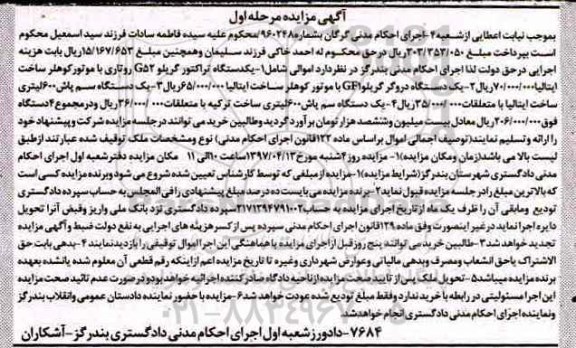 آگهی مزایده مرحله اول
بموجب نیابت اعطایی از شعبه ۴-اجرای احکام مدنی گرگان بشماره ۹۶۰۲۴۸ محکوم علیه سیده فاطمه سادات فرزند سید اسمعیل محکوم
است بپرداخت مبلغ ۳۰۳/۳۵۳/۰۵۰ ریال در حق محکوم له احمد خاکی فرزند سلیمان و همچنین مبلغ ۱۵/۱۶۷/۶۵۳ ریال بابت هزینه
اجرایی در حق دولت لذا اجرای احکام مدنی بندرگز در نظر دارد اموالی شامل ۱-یکدستگاه تراکتور گریلو G۵۲ روتاری با موتور کوهلر ساخت
ایتالیا ۷۰/۰۰۰/۰۰۰ ریال ۲-یک دستگاه دروگر گریلو GF۱ با موتور کوهلر ساخت ایتالیا ۶۵/۰۰۰/۰۰۰ ریال ۳-یک دستگاه سم پاش ۶۰۰ لیتری
ساخت ایتالیا با متعلقات ۳۵/۰۰۰/۰۰۰ ریال ۴-یک دستگاه سم پاش ۶۰۰ لیتری ساخت ترکیه با متعلقات ۳۶/۰۰۰/۰۰۰ ریال و در مجموع ۴ دستگاه
فوق ۲۰۶/۰۰۰/۰۰۰ ریال معادل بیست میلیون و ششصد هزار تومان برآورد گردید و طالبین خرید می توانند در جلسه مزایده شرکت و پیشنهاد خود
را ارائه و تسلیم نمایند(توصیف اجمالی اموال براساس ماده ۱۲۲ قانون اجرای احکام مدنی) نوع و مشخصات ملک توقیف شده عبارتند از طبق
لیست بالا می باشد(زمان و مکان مزایده) ۱- مزایده روز ۴ شنبه مورخ ۱۳۹۷/۰۴/۱۳ ساعت ۱۰ الی ۱۱ مکان مزایده دفتر شعبه اول اجرای احکام
مدنی دادگستری شهرستان بندرگز(شرایط مزایده) ۱-مزایده از مبلغی که توسط کارشناس تعیین شده شروع می شود و برنده مزایده کسی است
که بالاترین مبلغ را در جلسه مزایده قبول نماید ۲-برنده مزایده می بایست ده درصد مبلغ پیشنهادی را فی المجلس به حساب سپرده دادگستری
تودیع و مابقی آن را ظرف یک ماه از تاریخ اجرای مزایده به حساب ۲۱۷۱۲۹۴۷۹۱۰۰۲ سپرده دادگستری نزد بانک ملی واریز و قبض آنرا تحویل
دایره اجرا نماید در غیر اینصورت وفق ماده ۱۲۹ قانون اجرای احکام مدنی سپرده پس از کسر هزینه های اجرایی به نفع دولت ضبط و آگهی مزایده
تجدید خواهد شد ۳-طالبین خرید می توانند پنج روز قبل از اجرای مزایده با هماهنگی این اجرا اموال توقیفی را بازدید نمایند ۴-بدهی بابت حق
الاشتراک یا حق انشعاب و مصرف و بدهی مالیاتی و عوارض شهرداری و غیره تا تاریخ مزایده اعم از اینکه رقم قطعی آن معلوم شده یا نشده بعهده
برنده مزایده میباشد ۵-تحویل ملک پس از تایید صحت مزایده از ناحیه دادگاه صادر کننده اجرائیه خواهد بود و در صورت عدم تائید صحت مزایده
این اجرا مسئولیتی در رابطه با خرید ندارد و فقط مبلغ تودیع شده عودت خواهد شد ۶-مزایده با حضور نماینده دادستان عمومی و انقلاب بندرگز
و نماینده اجرای احکام مدنی دادگستری انجام خواهد شد.
۷۶۸۴-دادورز شعبه اول اجرای احکام مدنی دادگستری بندرگز-آشکاران